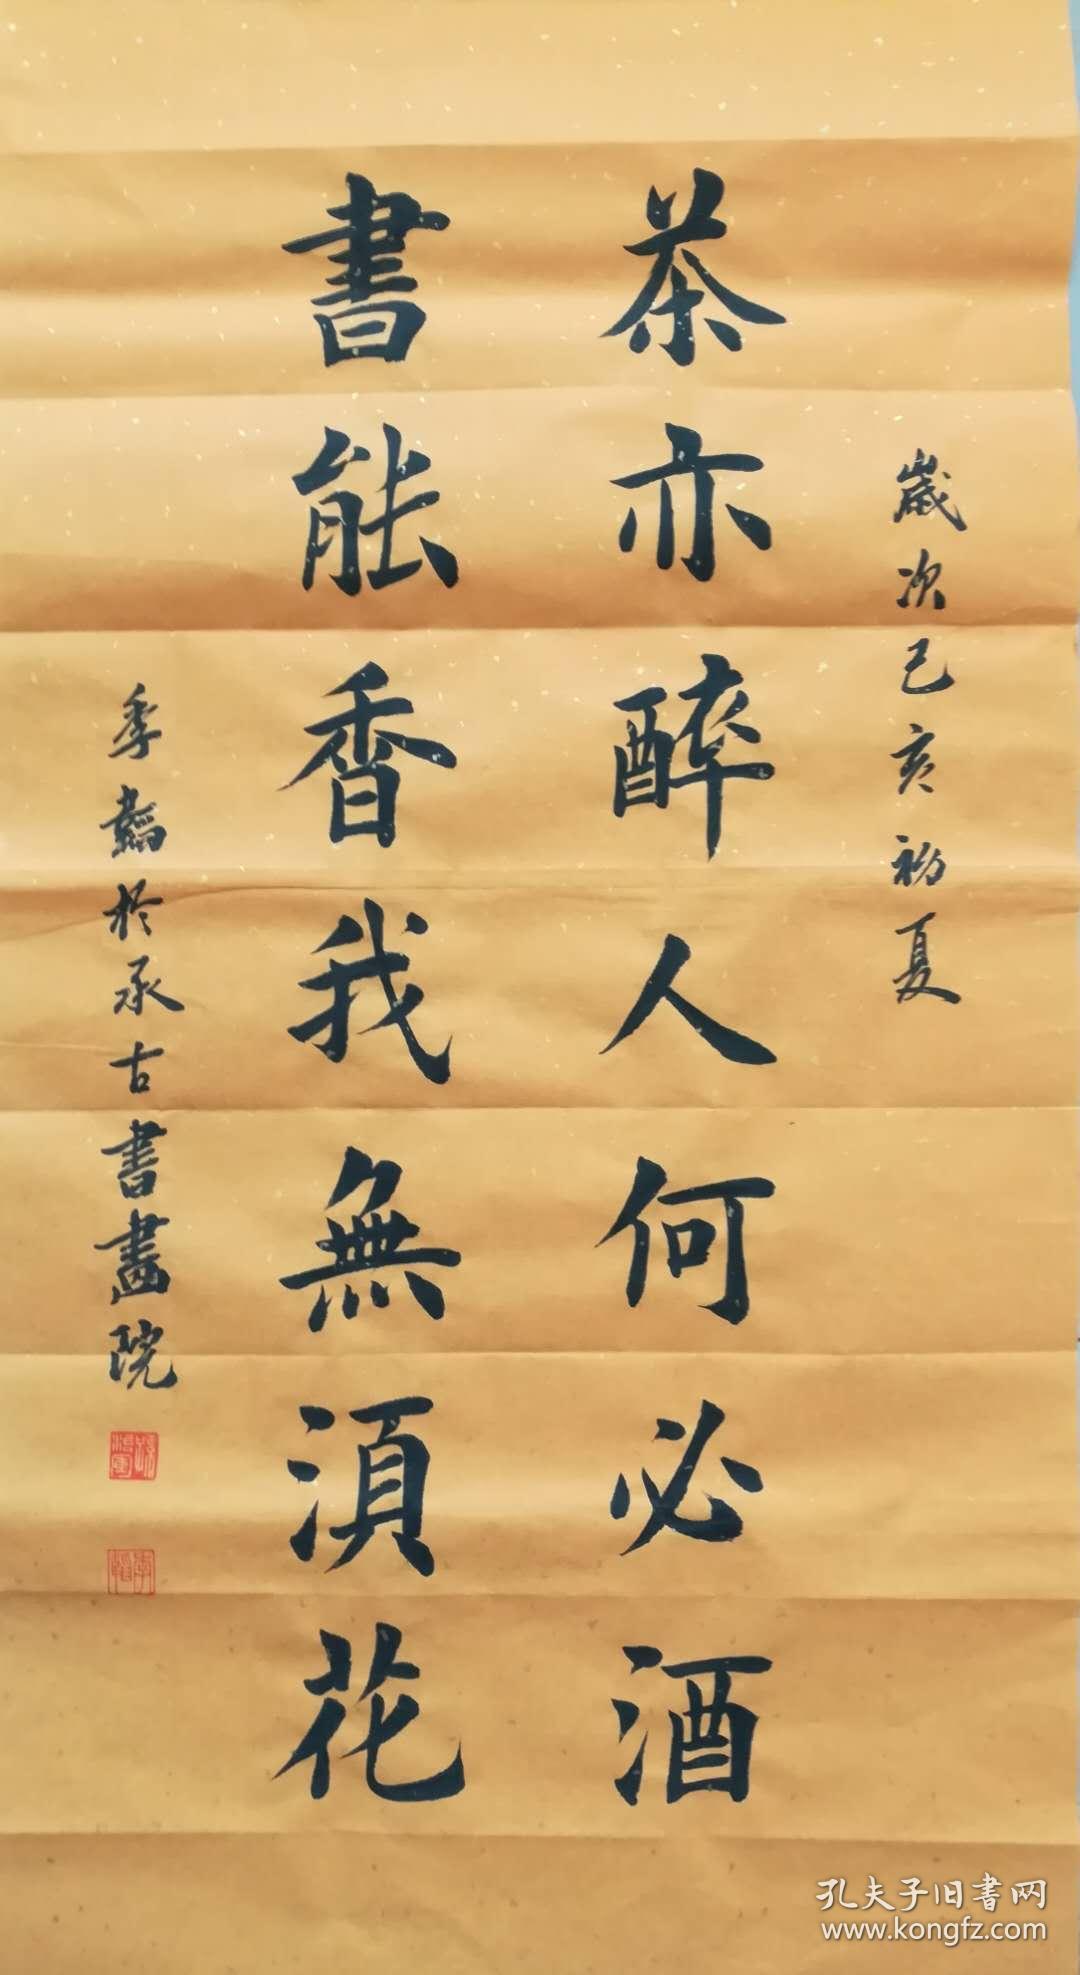 歲次己亥初夏
茶亦醉人何必酒
書能香我無須花
季韜於承古書畫院
孔夫子旧書网
www.kongfz.com